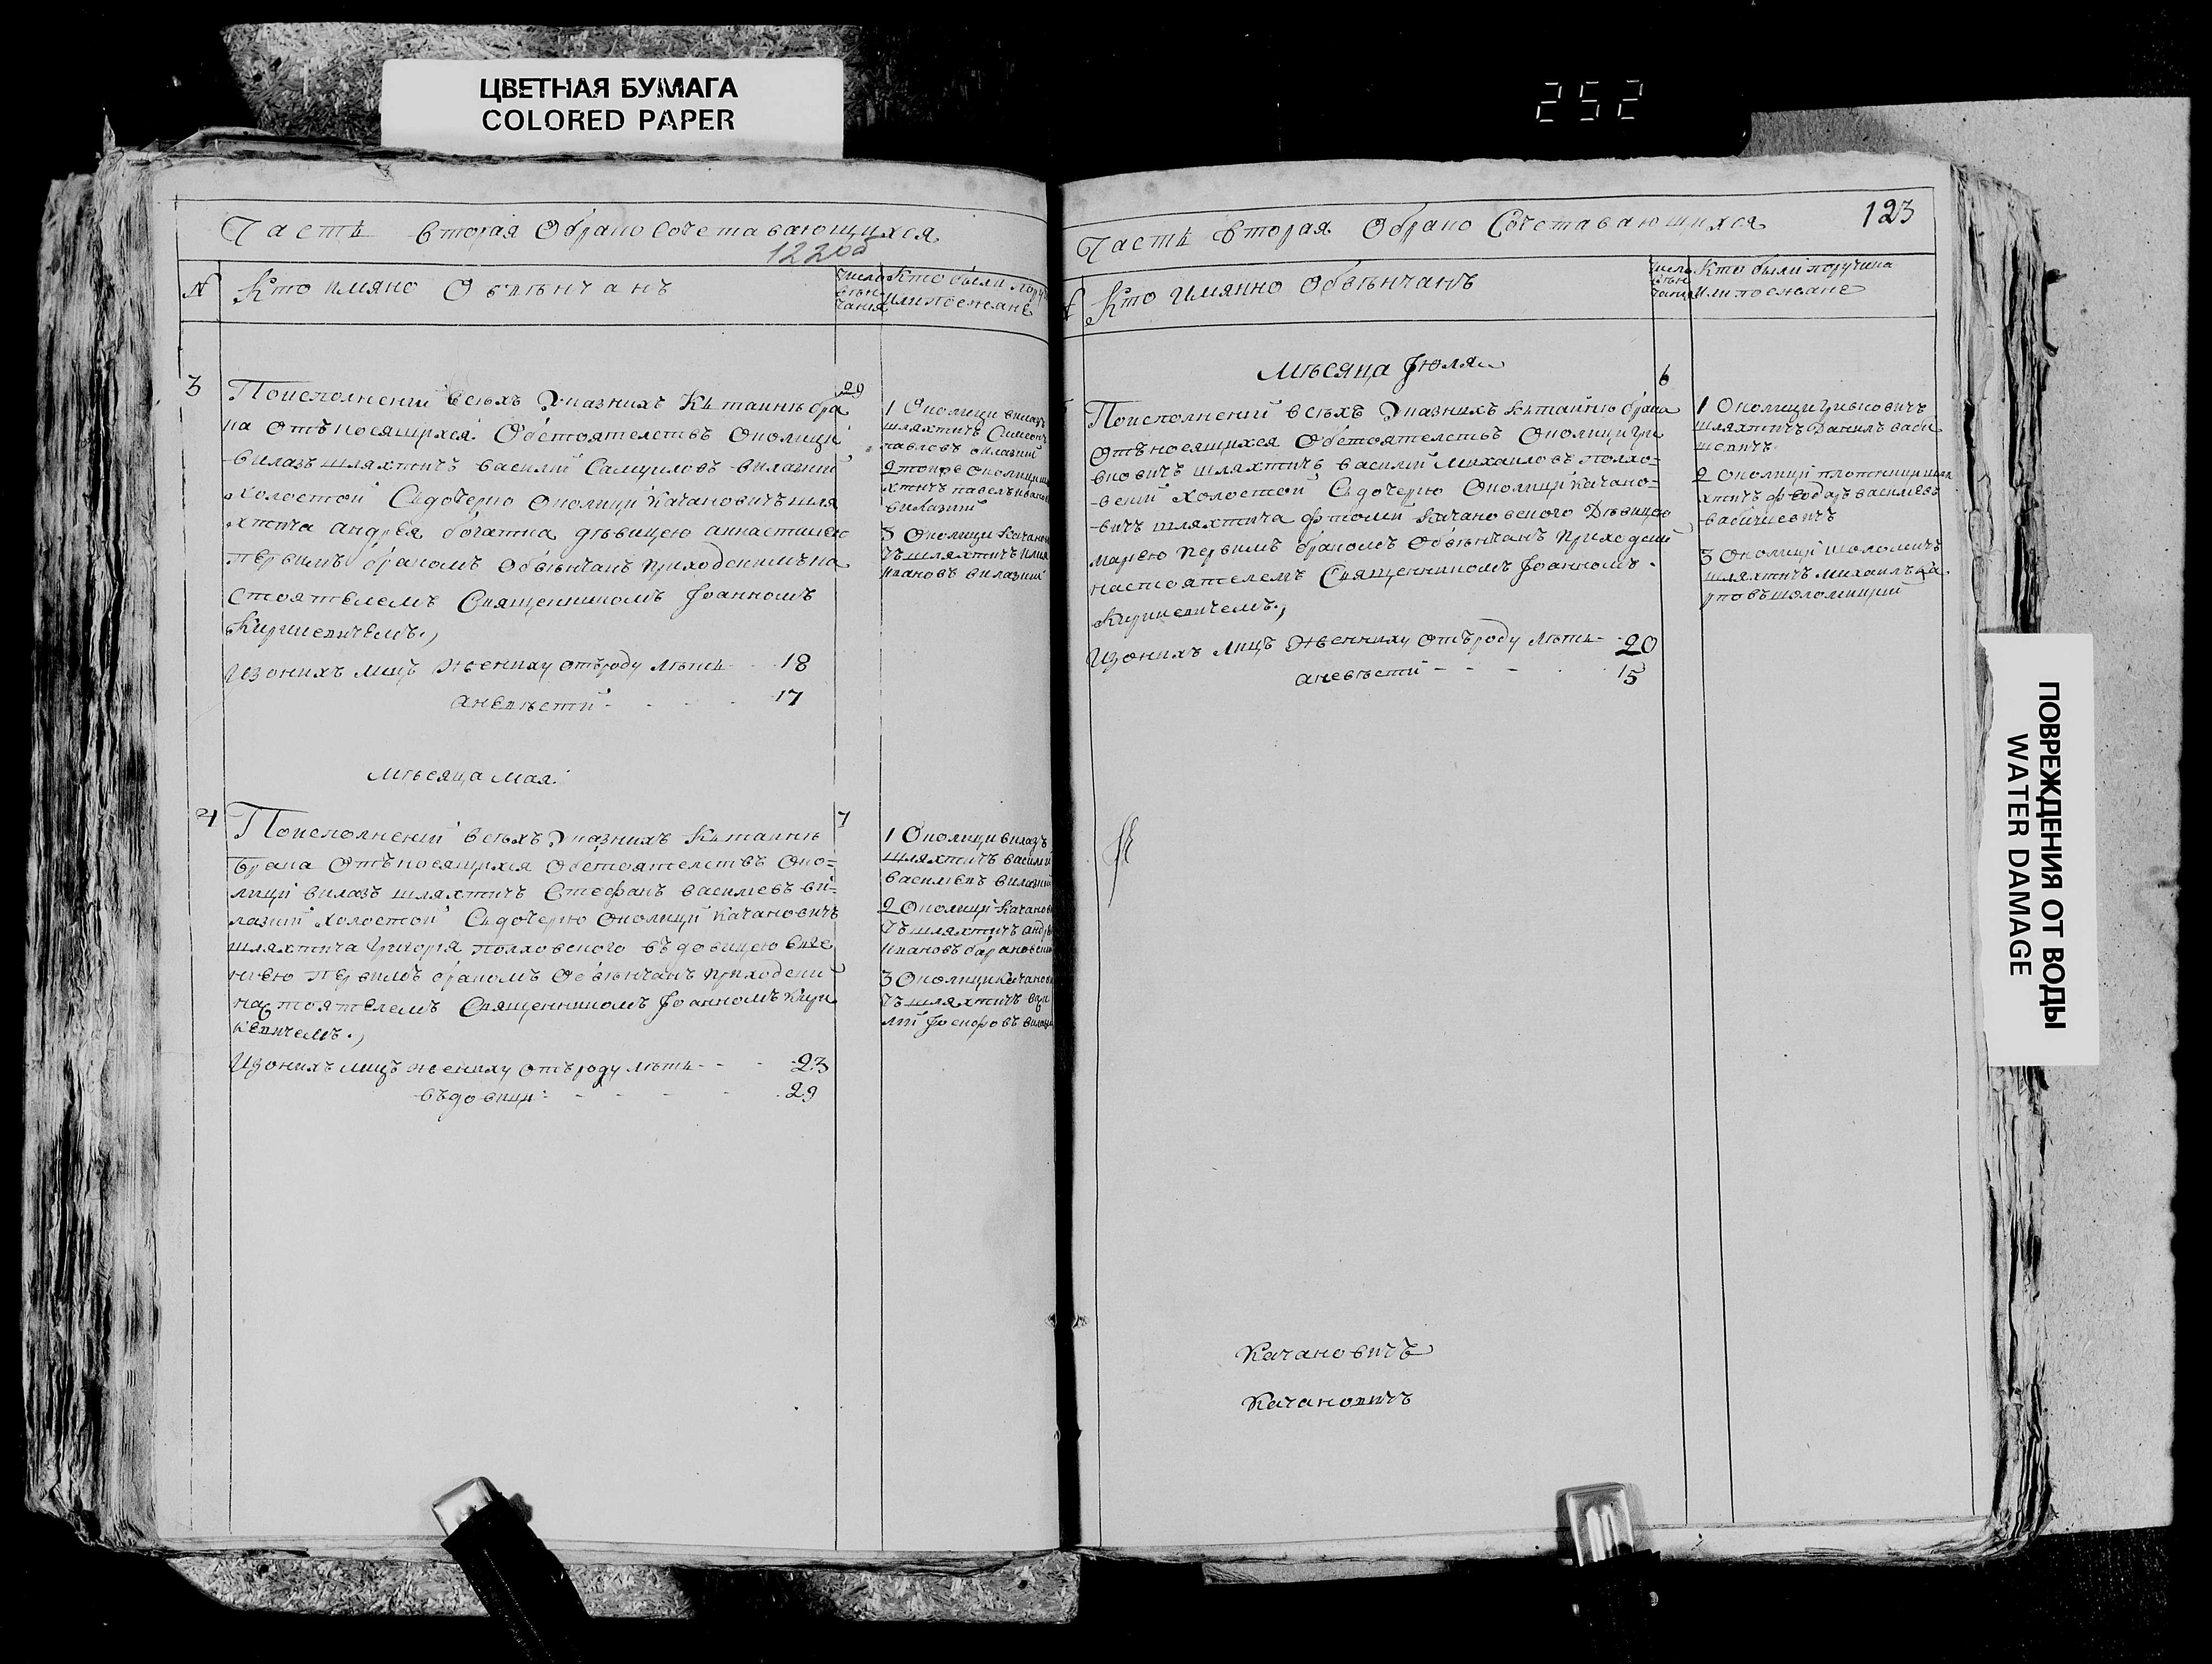 ЦВЕТНАЯ БУМАГА
COLORED PAPER
252
Часть вторая Обрако сочетавающихся
122об
№
Кто имяно Обвѣнчанъ
число вѣнчания
Кто были поручи
или поезжане
3
Поисполнении всѣхъ Указнихъ Кътаинѣ бра
29
ка отъносящихся Обстоятелствъ Околици
вилазъ шляхтичъ василий Самуиловъ вилазкий
холостой Съдочерю Околици Качановичъ шля
хтича андрея богатка дѣвицею анастасиею
первимъ бракомъ Обвѣнчанъ приходскимъ на
стоятелемъ Священникомъ Іоанномъ
Кириевичемъ.,
Изонихъ лицъ женику отъроду лѣтъ 18
аневѣсти 17
1 Околици вилазъ
шляхтичъ Симеонъ
павловъ вилазкий
2 тоиже околици шля
хтичъ павелъ иванов
вилазкий
3 Околици Качанови
чъ шляхтичъ илия
ивановъ вилазкий
Мѣсяца мая
4
Поисполнении всѣхъ Указнихъ Кътаинѣ
7
брака Отъносящихся Обстоятелствъ Око=
лици вилазъ шляхтичъ Стефанъ василиевъ ви=
лазкий холостой Съдочерю околици Качановичъ
шляхтича Григория полховского въдовицею
первимъ бракомъ Обвѣнчанъ приходский
настоятелемъ Священникомъ Іоанномъ Кири
кевичемъ.,
Изонихъ лицъ женику отъроду лѣтъ 23
въдовици 29
1 Околици вилазъ
шляхтичъ василий
василиевъ вилазкий
2 Околици Качанови
чъ шляхтичъ андрей
ивановъ барановский
3 Околици Качанови
чъ шляхтичъ
Часть вторая Обрако Сочетавающихся
123
Кто имянно Обвѣнчанъ
число вѣнчания
Кто были поручика
или поезжане
Мѣсяца Июля
6
Поисполнений всѣхъ Указнихъ Кътаинѣ брака
Отъносящихся Обстоятелствъ Околици Гри
вковичъ шляхтичъ василий Михаиловъ полхо=
вский холостой Съдочерю Околици Качано=
вичъ шляхтича фтоми Качановского Дѣвицею
мариею первимъ бракомъ Обвѣнчанъ приходский
настоятелемъ Священникомъ Іоанномъ
Кирикевичемъ.,
Изонихъ лицъ женнику отъроду лѣтъ 20
аневѣсти 15
1 Околици Гривковичъ
шляхтичъ Данилъ баби
шевичъ
2 околици плотници шля
хтичъ феодаръ василевъ
бабичевичъ
3 Околици шоломичъ
шляхтичъ Михаилъ ка
рповъ шоломицкий
Качановичъ
Качановичъ
ПОВРЕЖДЕНИЯ ОТ ВОДЫ
WATER DAMAGE